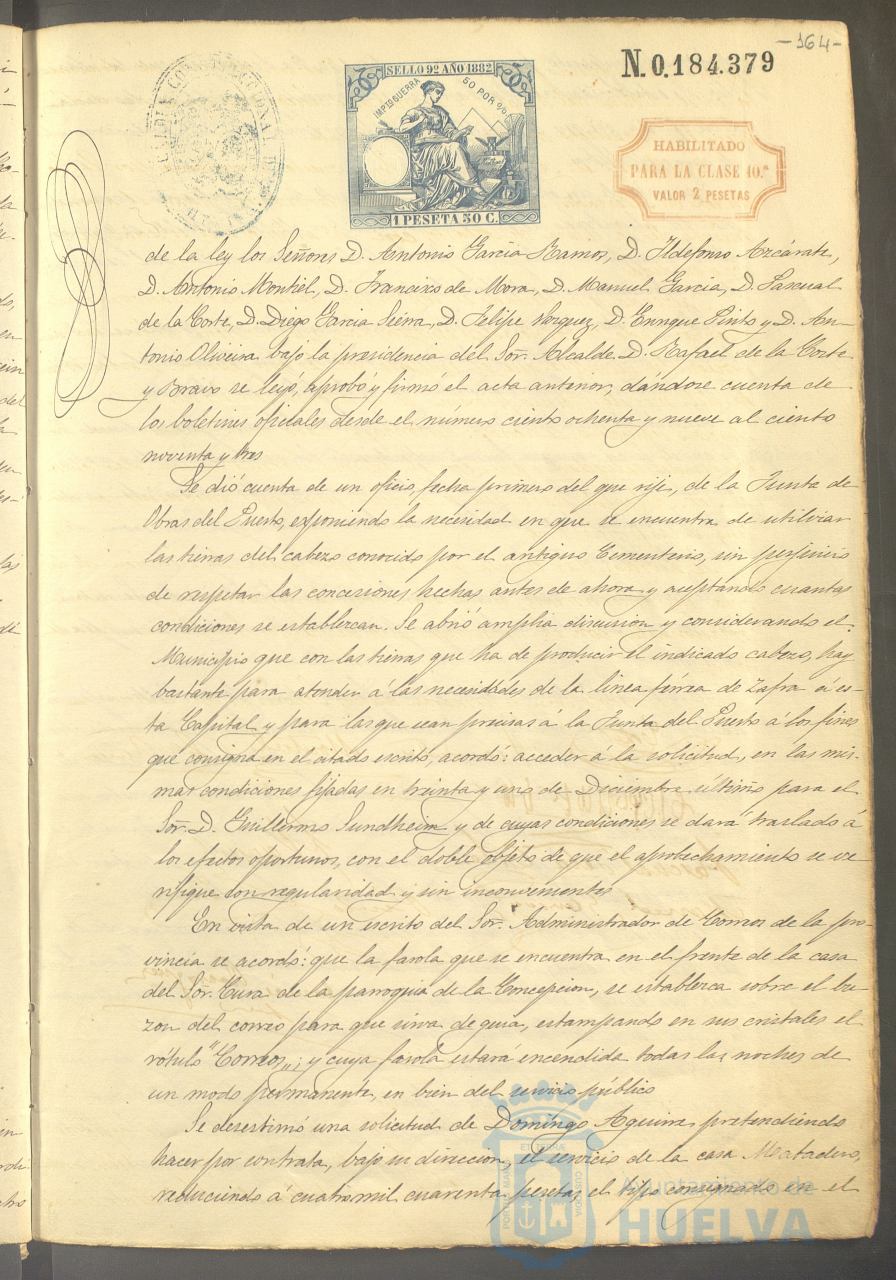 -164-
N. 0.184.379
SELLO 9º AÑO 1882
IMPTO GUERRA 50 POR %
1 PESETA 50 C.
HABILITADO
PARA LA CLASE 10.ª
VALOR 2 PESETAS
de la ley los Señores D. Antonio García Ramos, D. Ildefonso Azcárate,
D. Antonio Montiel, D. Francisco de Mora, D. Manuel García, D. Pascual
de la Corte, D. Diego García Sierra, D. Felipe Vazquez, D. Enrique Pinto y D. An-
tonio Oliveira bajo la presidencia del Sor. Alcalde D. Rafael de la Corte
y Bravo se leyó, aprobó y firmó el acta anterior, dándose cuenta de
los boletines oficiales desde el número ciento ochenta y nueve al ciento
noventa y tres
Se dió cuenta de un oficio, fecha primero del que rije, de la Junta de
Obras del Puerto, exponiendo la necesidad en que se encuentra de utilizar
las tierras del cabezo conocido por el antiguo Cementerio, sin perjuicio
de respetar las concesiones hechas antes de ahora y aceptando cuantas
condiciones se establezcan. Se abrió amplia discusion y considerando el
Municipio que con las tierras que ha de producir el indicado cabezo, hay
bastante para atender á las necesidades de la linea férrea de Zafra á es-
ta Capital y para las que sean precisas á la Junta del Puerto á los fines
que consigna en el citado escrito, acordó: acceder á la solicitud, en las mis-
mas condiciones fijadas en treinta y uno de Diciembre último para el
Sor. D. Guillermo Sundheim y de cuyas condiciones se dará traslado á
los efectos oportunos, con el doble objeto de que el aprovechamiento se ve-
rifique con regularidad y sin inconvenientes
En vista de un escrito del Sor. Administrador de Correos de la pro-
vincia se acordó: que la farola que se encuentra en el frente de la casa
del Sor. Cura de la parroquia de la Concepcion, se establezca sobre el bu-
zon del correo para que sirva de guia, estampando en sus cristales el
rótulo "Correos„; y cuya farola estará encendida todas las noches de
un modo permanente, en bien del servicio público
Se desestimó una solicitud de Domingo Aguirre pretendiendo
hacer por contrata, bajo su direccion, el servicio de la casa Matadero,
reduciendo á cuatro mil cuarenta pesetas el tipo consignado en el
Ayuntamiento de
HUELVA